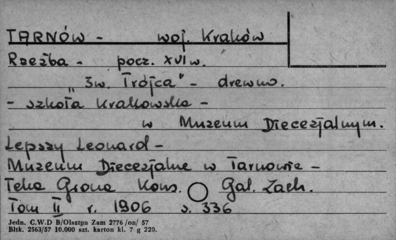 TARNÓW - woj. Kraków
Rzeźba - pocz. XVI w.
"Św. Trójca" - drewno.
- szkoła Krakowska -
w Muzeum Diecezjalnym.
Lepszy Leonard -
Muzeum Diecezjalne w Tarnowie -
Teka Grona Kons. Gal. Zach.
Tom II r. 1906 s. 336
Jedn. C.W.D B/Olsztyn Zam 2776/on/57
Bltk. 2563/57 10.000 szt. karton kl. 7 g 220.